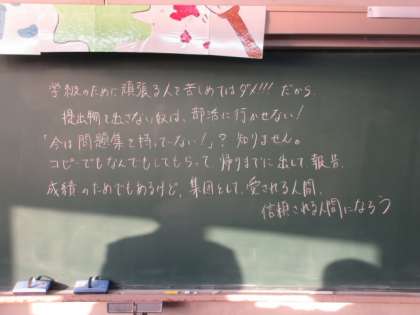 学級のために頑張る人で苦しめてはダメ!!! だから
提出物を出さない奴は、部活に行かせない!
「今は問題集を持ってない!」? 知りません。
コピーでもなんでもしてもらって、帰りまでに出して報告
成績のためでもあるけど、集団として、愛される人間、
信頼される人間になろう